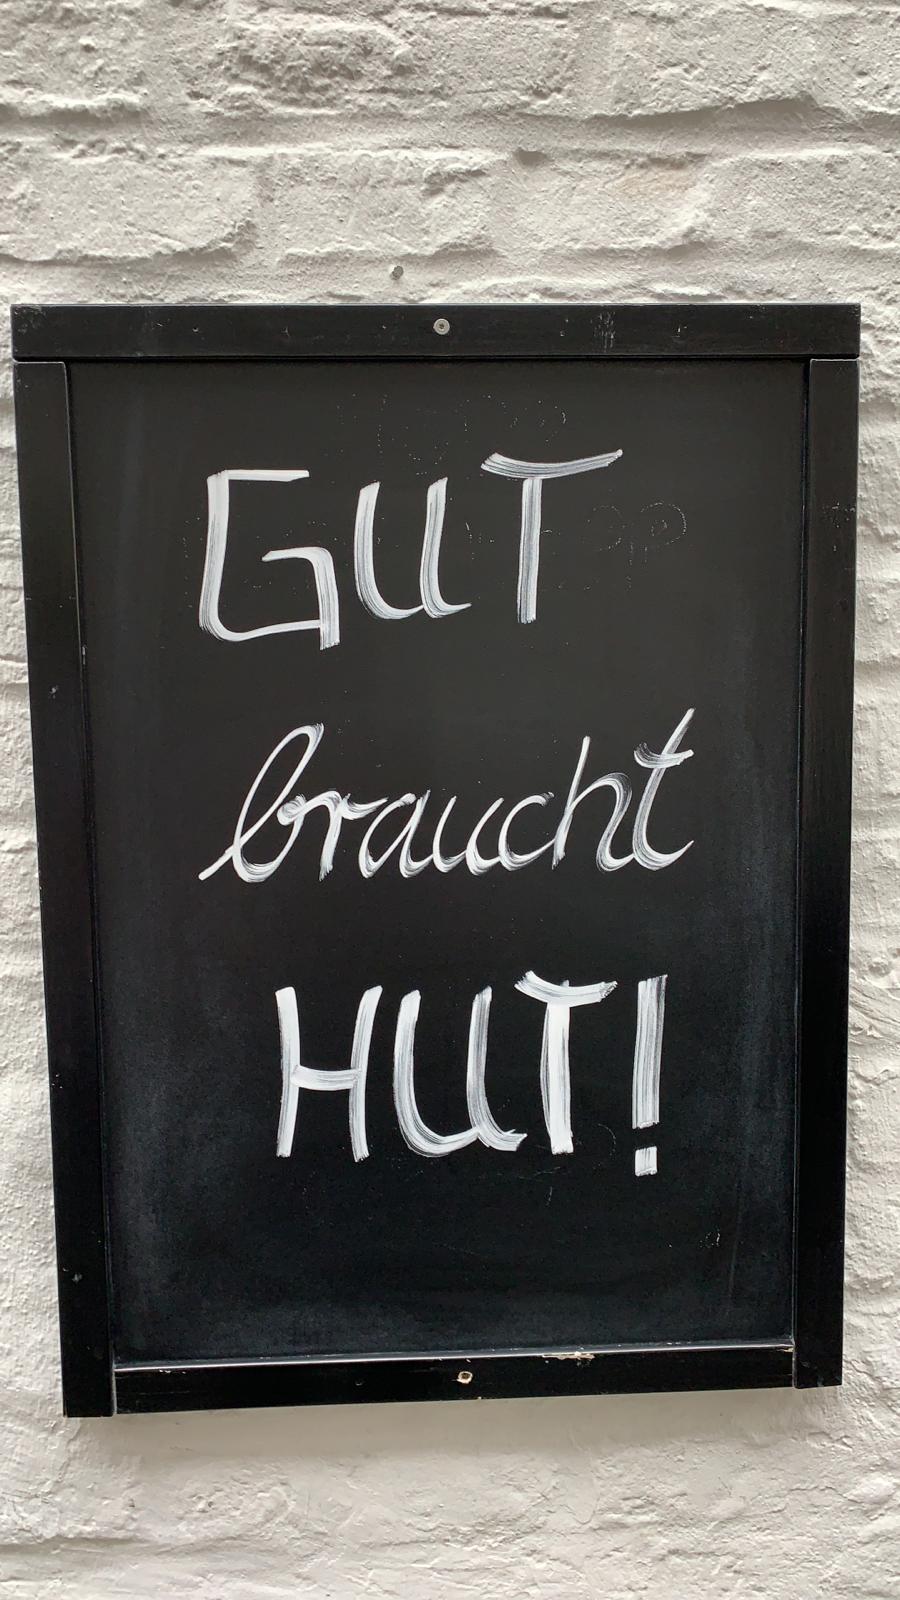 GUT
braucht
HUT!